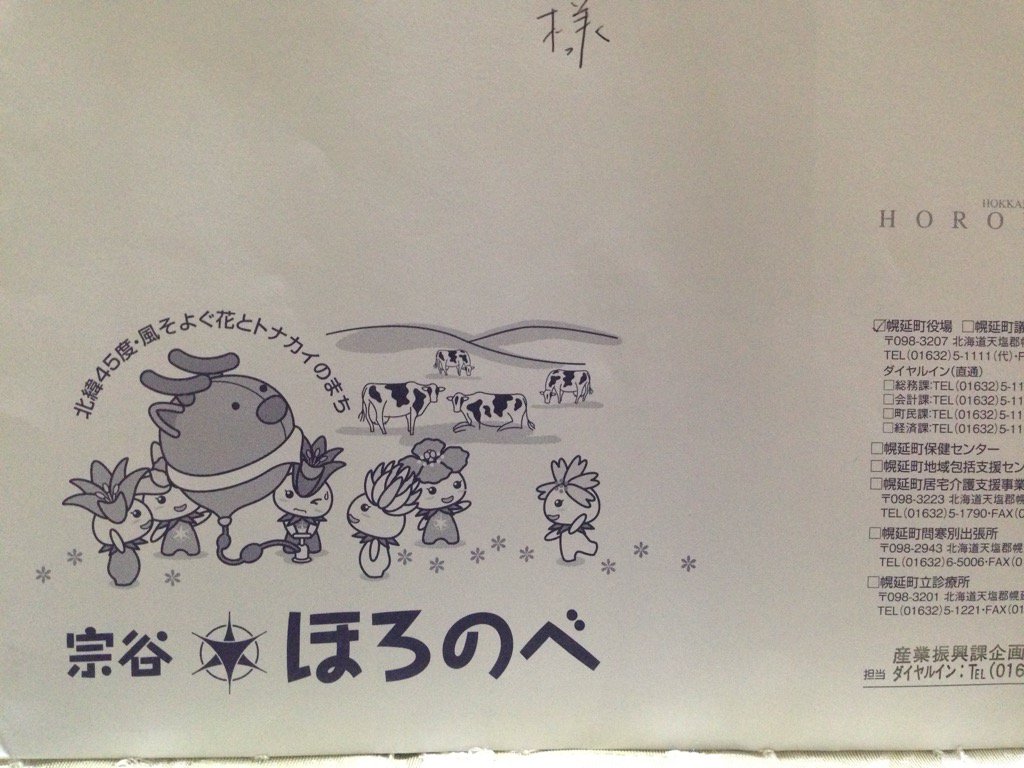 様
HOKKA
HORO
北緯45度・風そよぐ花とトナカイのまち
宗谷 ほろのべ
☑幌延町役場 □幌延町議
〒098-3207 北海道天塩郡幌
TEL(01632)5-1111(代)・F
ダイヤルイン(直通)
□総務課:TEL(01632)5-11
□会計課:TEL(01632)5-11
□町民課:TEL(01632)5-11
□経済課:TEL(01632)5-11
□幌延町保健センター
□幌延町地域包括支援セン
□幌延町居宅介護支援事業
〒098-3223 北海道天塩郡幌
TEL(01632)5-1790・FAX(0
□幌延町問寒別出張所
〒098-2943 北海道天塩郡幌
TEL(01632)6-5006・FAX(0
□幌延町立診療所
〒098-3201 北海道天塩郡幌
TEL(01632)5-1221・FAX(01
産業振興課企画
担当 ダイヤルイン:TEL(016